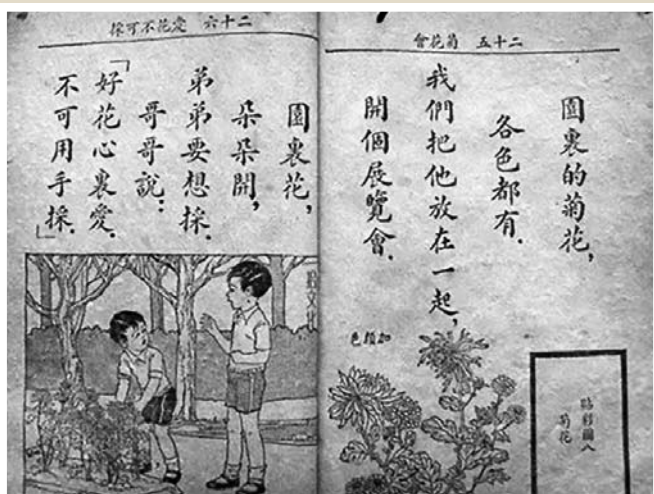 二十五 菊花會
園裏的菊花,
各色都有.
我們把他放在一起,
開個展覽會.
加顏色
菊花
二十六 愛花不可採
園裏花,
朵朵開,
弟弟要想採.
哥哥說:
「好花心裏愛.
不可用手採.」